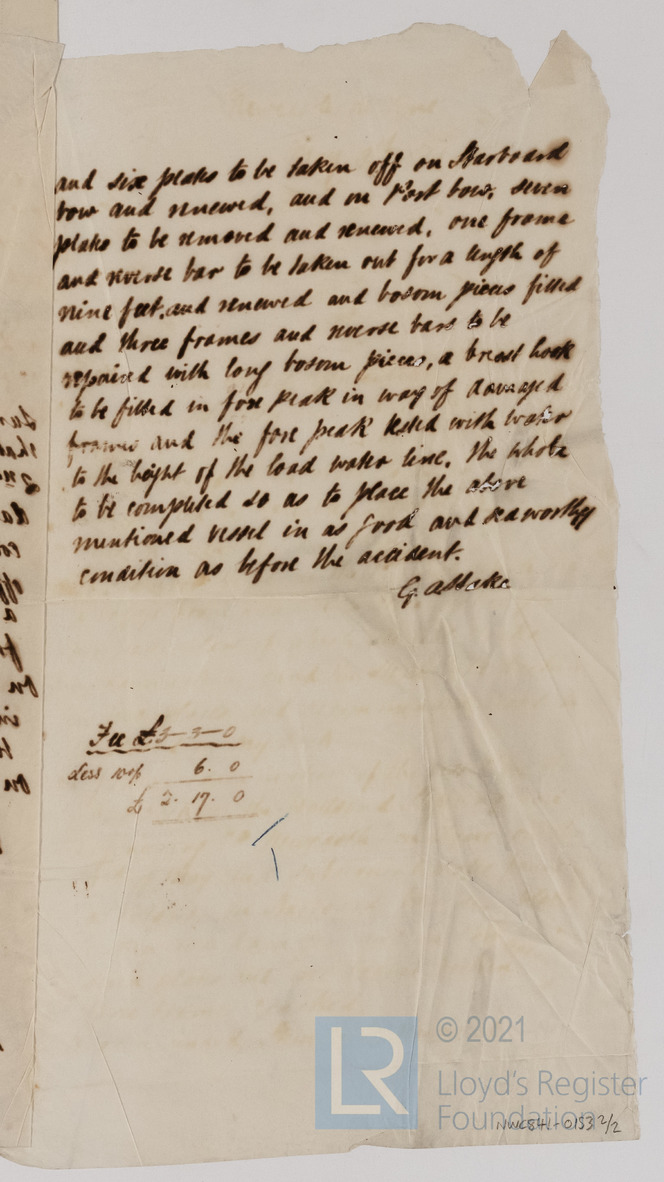 and six plates to be taken off on Starboard
bow and renewed, and on Port bow, seven
plates to be removed and renewed, one frame
and reverse bar to be taken out for a length of
nine feet, and renewed and bosom pieces fitted
and three frames and reverse bars to be
repaired with long bosom pieces, a breast hook
to be fitted in fore peak in way of damaged
frames and the fore peak tested with water
to the height of the load water line. The whole
to be completed so as to place the above
mentioned vessel in as good and seaworthy
condition as before the accident.
G.
Fee £3-3-0
Less 6. 0
£ 2. 17. 0
LR
© 2021
Lloyd's Register
Foundation
0153 2/2